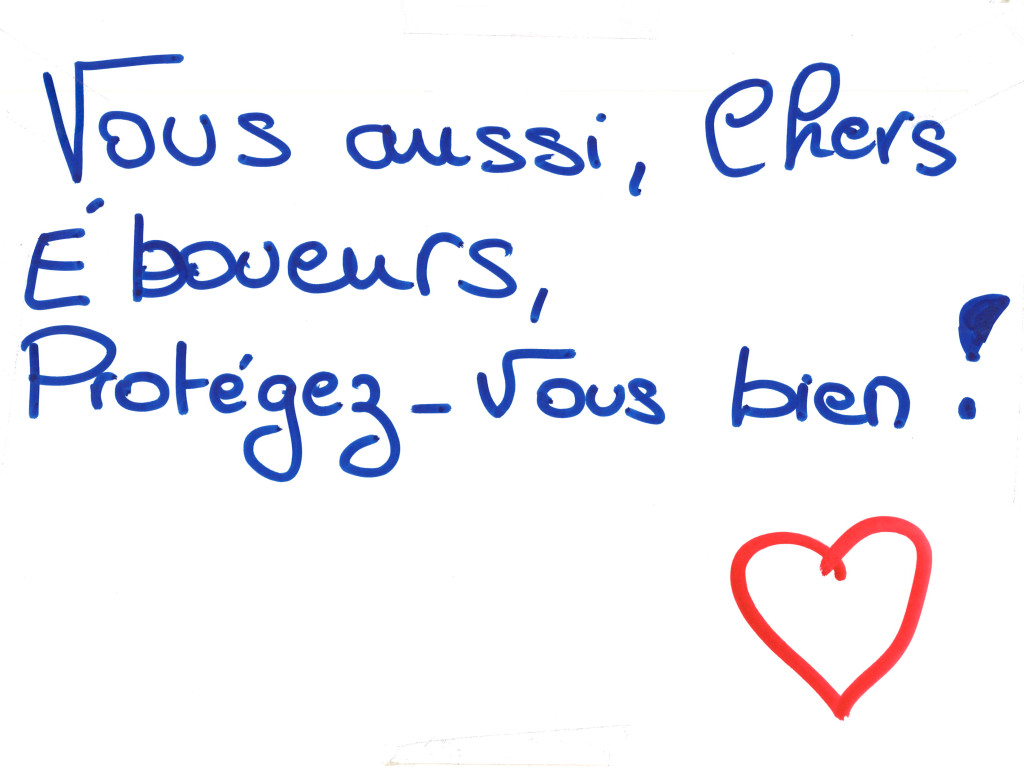 Vous aussi, Chers
Éboueurs,
Protégez-vous bien !